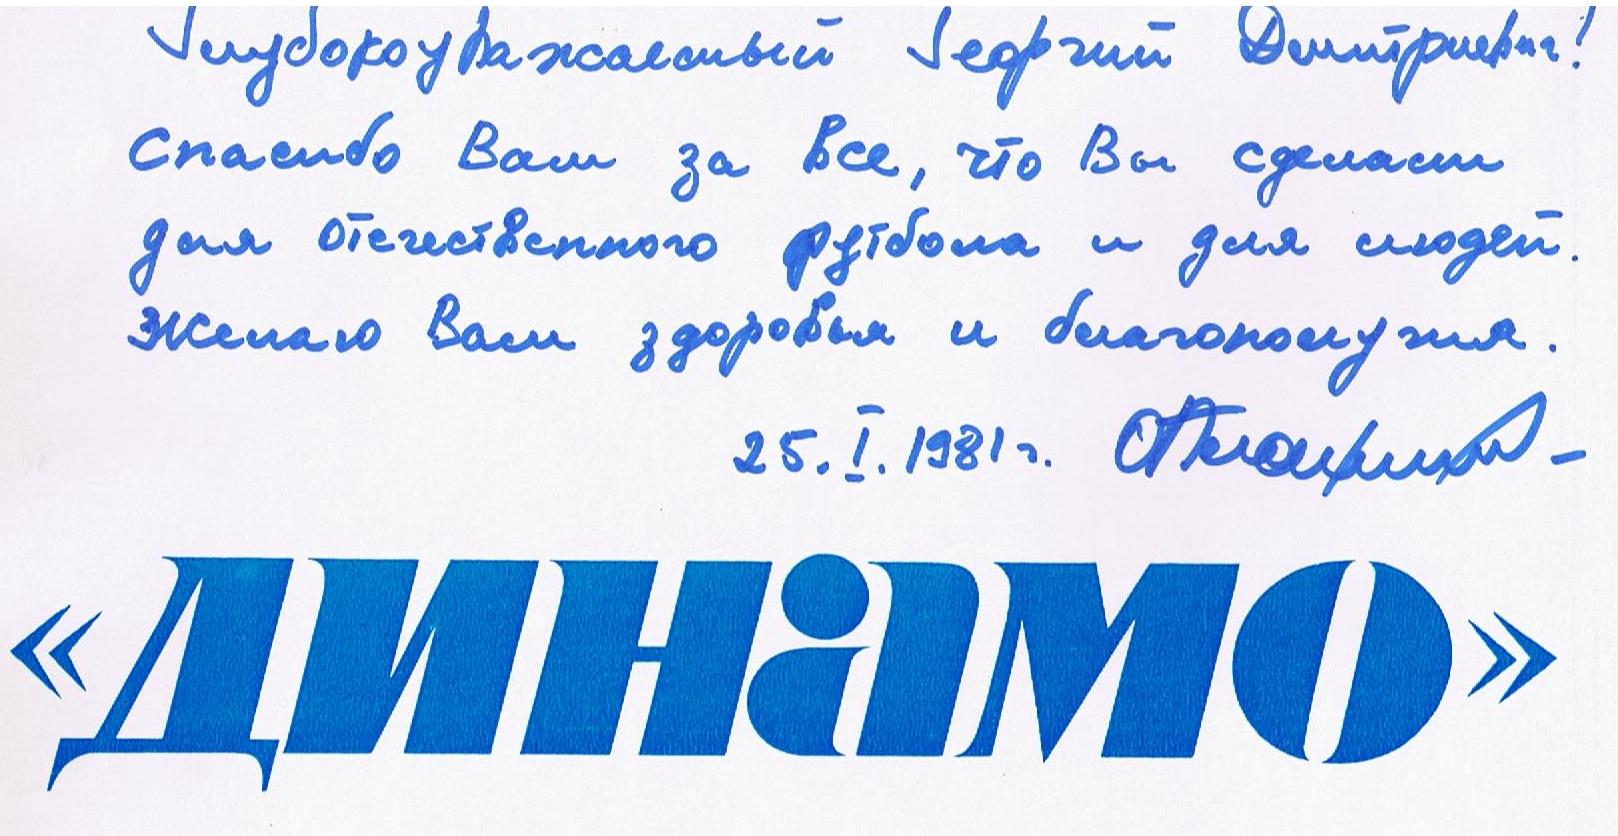 Глубокоуважаемый Георгий Дмитриевич!
Спасибо Вам за все, что Вы сделали
для отечественного футбола и для людей.
Желаю Вам здоровья и благополучия.
25.I.1981г.
«ДИНАМО»